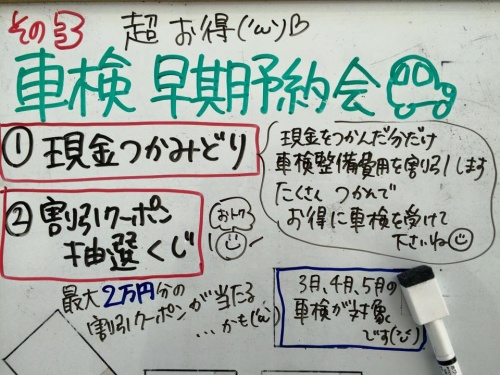 その3
超 お得('ω')b
車検 早期予約会
① 現金つかみどり
現金をつかんだ分だけ
車検整備費用を割引します
たくさん つかんで
お得に車検を受けて
下さいね
② 割引クーポン
抽選くじ
おトク
最大2万円分の
割引クーポンが当たる
...かも('ω')
3月、4月、5月の
車検が対象
です('ω')